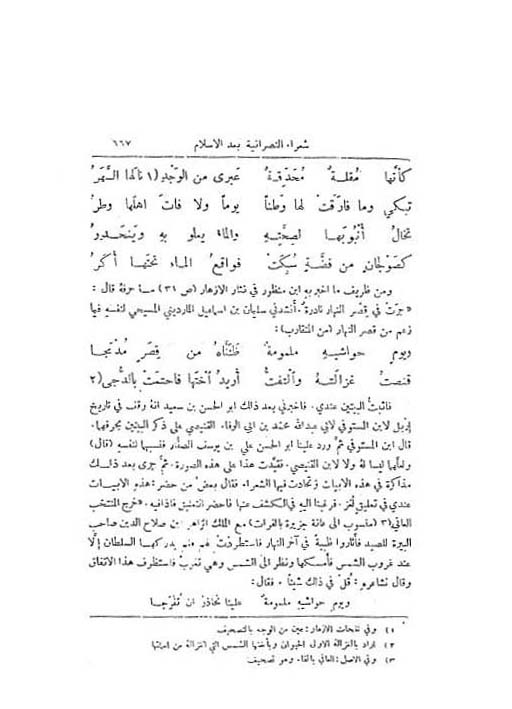 شعراء النصرانية بعد الاسلام ٦٦٧
كأنّها مُقلةٌ مُحدّقةٌ عَبرى من الوَجْدِ(١ نالها السَّهَرُ
تبكي وما فارقَتْ لها وطناً يوماً ولا فاتَ اهلَها وطرُ
تخالُ أُنْبُوبَها لصحَّتِهِ والماءُ يعلو بهِ وينحدرُ
كصَوْلجانٍ من فضَّةٍ سُبِكَتْ فواقعُ الماء تحتَها أُكَرُ
ومن ظريف ما اخبر به ابن منظور في نثار الازهار (ص ٣١) قال :
«جرَت في قِصَر النهار نادرة: أنشدني سليمان بن اسماعيل المارديني المسيحي لنفسهِ فيما
زعم من قصر النهار (من المتقارب):
ويومٍ حواشيهِ ملمومةٌ ظننّاهُ من قِصَرٍ مُدْبجا
قنصتُ غزالتَهُ والتفتُّ أُريدُ أُختَها فاحتمَتْ بالدُّجى(٢
فاثبتُّ البيتين عندي. فاخبرني بعد ذلك ابو الحسن بن سعيد انهُ وقف في تاريخ
إربل لابن المستوفي لابي عبدالله محمد بن ابي الوفاء القنيصي على ذكر البيتين بحرفهما.
قال ابن المستوفي ثمَّ ورد علينا ابو الحسن علي بن يوسف الصفّار فنسبهما لنفسهِ (قال)
ولعلّهما ليسا لهُ ولا لابن القنيصي. فقيّدت هذا على هذه الصورة. ثمَّ جرى بعد ذلك
مذاكرة في هذه الابيات وتحادث فيها الشعراء. فقال بعض من حضر: هذه الابيات
عندي في تعليق لغز. فرغبنا اليه في الكشف عنها فاحضر التعليق فاذا فيه. «خرج المنتخب
العاني(٣ (منسوب الى عانة جزيرة بالفرات) مع الملك الزاهر ابن صلاح الدين صاحب
البيرة للصيد فأثاروا ظبيةً في آخر النهار فاستطردَتْ لهم فلم يدركها السلطان إلَّا
عند غروب الشمس فأمسكها ونظر الى الشمس وهي تغرب فاستظرف هذا الاتفاق
وقال لشاعره: قُلْ في ذلك شيئاً. فقال:
ويومٍ حواشيهِ ملمومةٌ علينا نحاذر ان تُفْرجا
١) وفي نفحات الازهار: من الوجه بالتصحيف
٢) المراد بالغزالة الاولى الحيوان وبأختها الشمس التي الغزالة من اسمائها
٣) وفي الاصل: الغاني بالغاء وهو تصحيف